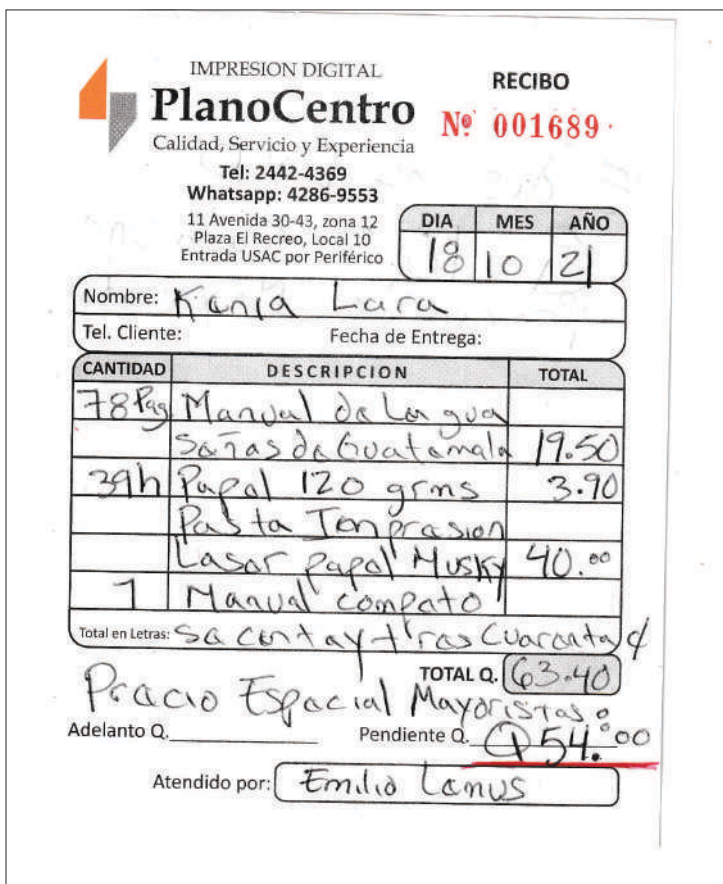 IMPRESION DIGITAL
PlanoCentro
Calidad, Servicio y Experiencia
Tel: 2442-4369
Whatsapp: 4286-9553
11 Avenida 30-43, zona 12
Plaza El Recreo, Local 10
Entrada USAC por Periférico
RECIBO
Nº 001689
DIA MES AÑO
18 10 21
Nombre: Kenia Lara
Tel. Cliente: Fecha de Entrega:
CANTIDAD DESCRIPCION TOTAL
78 Pag Manual de Lengua
Señas de Guatemala 19.50
39h Papel 120 grms 3.90
Pasta Impresion
Laser papel Husky 40.00
1 Manual competo
Total en Letras: Secenta y tres Cuarenta ¢
TOTAL Q. 63.40
Precio Especial Mayoristas:
Adelanto Q. Pendiente Q. Q 54.00
Atendido por: Emilio Lemus